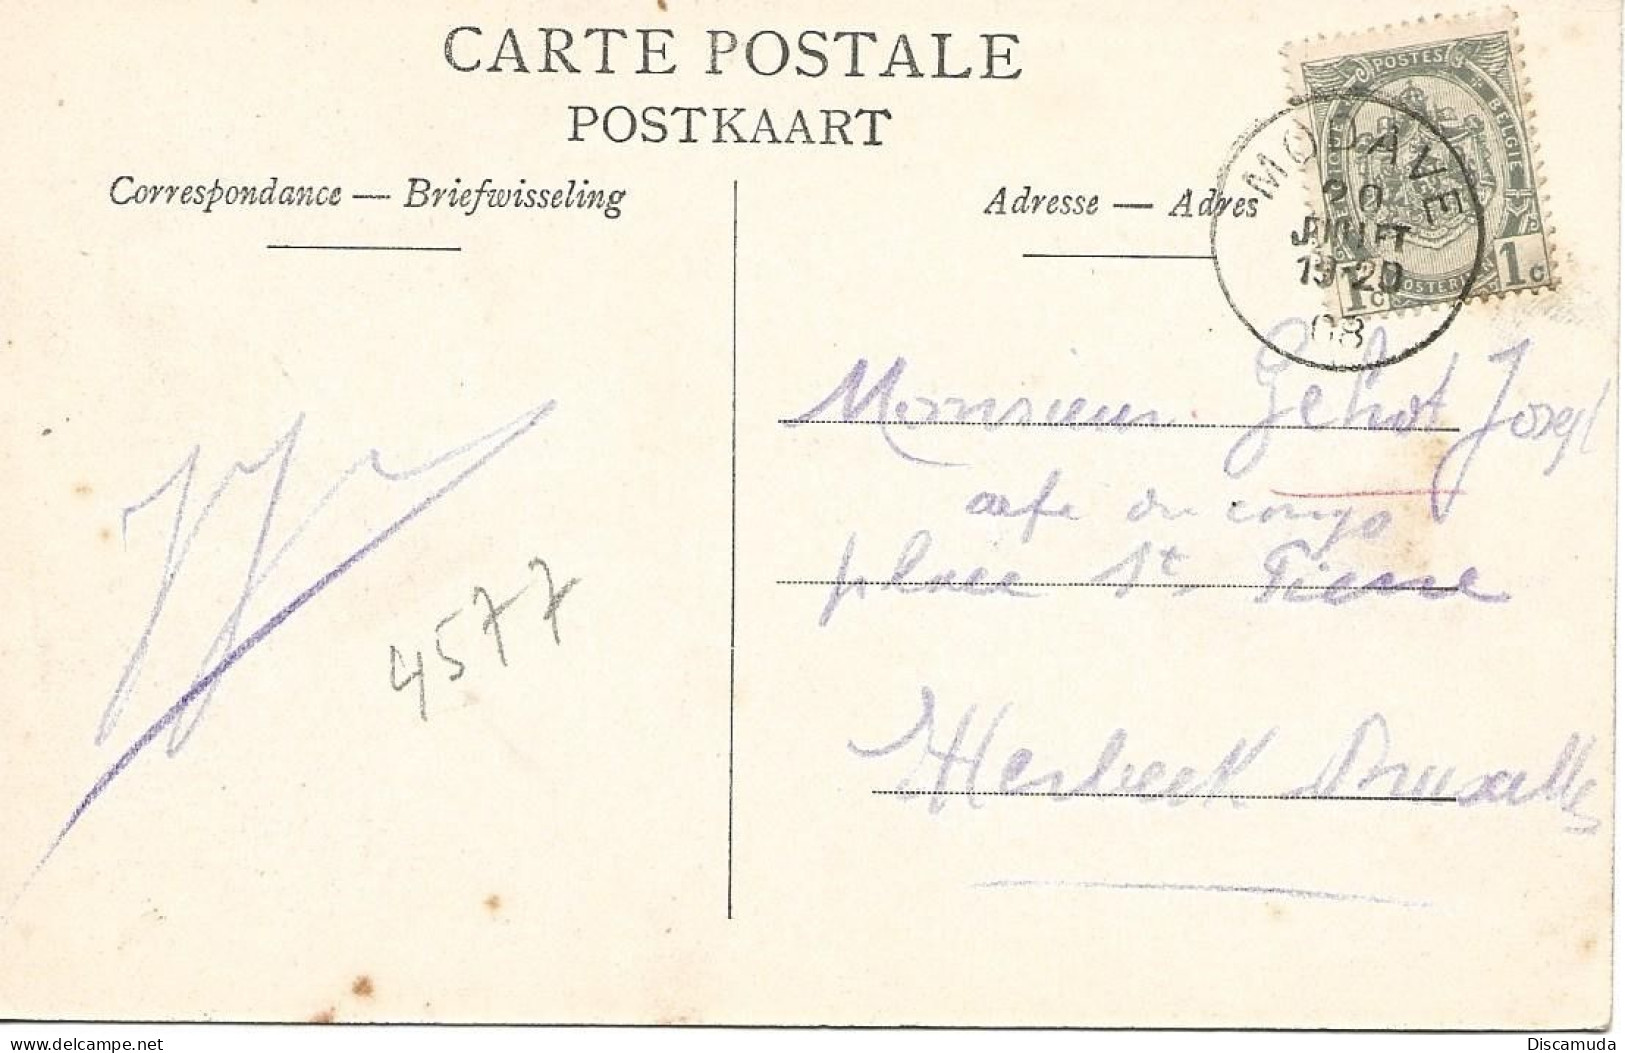 CARTE POSTALE
POSTKAART
Correspondance — Briefwisseling
Adresse — Adres
POSTES BELGIE
1c 1c
MODAVE
20
JUILLET
19-20
08
Monsieur Gehot Joseph
cafe du congo
place St Pierre
Bruxelles
4577
delcampe.net
Discamuda